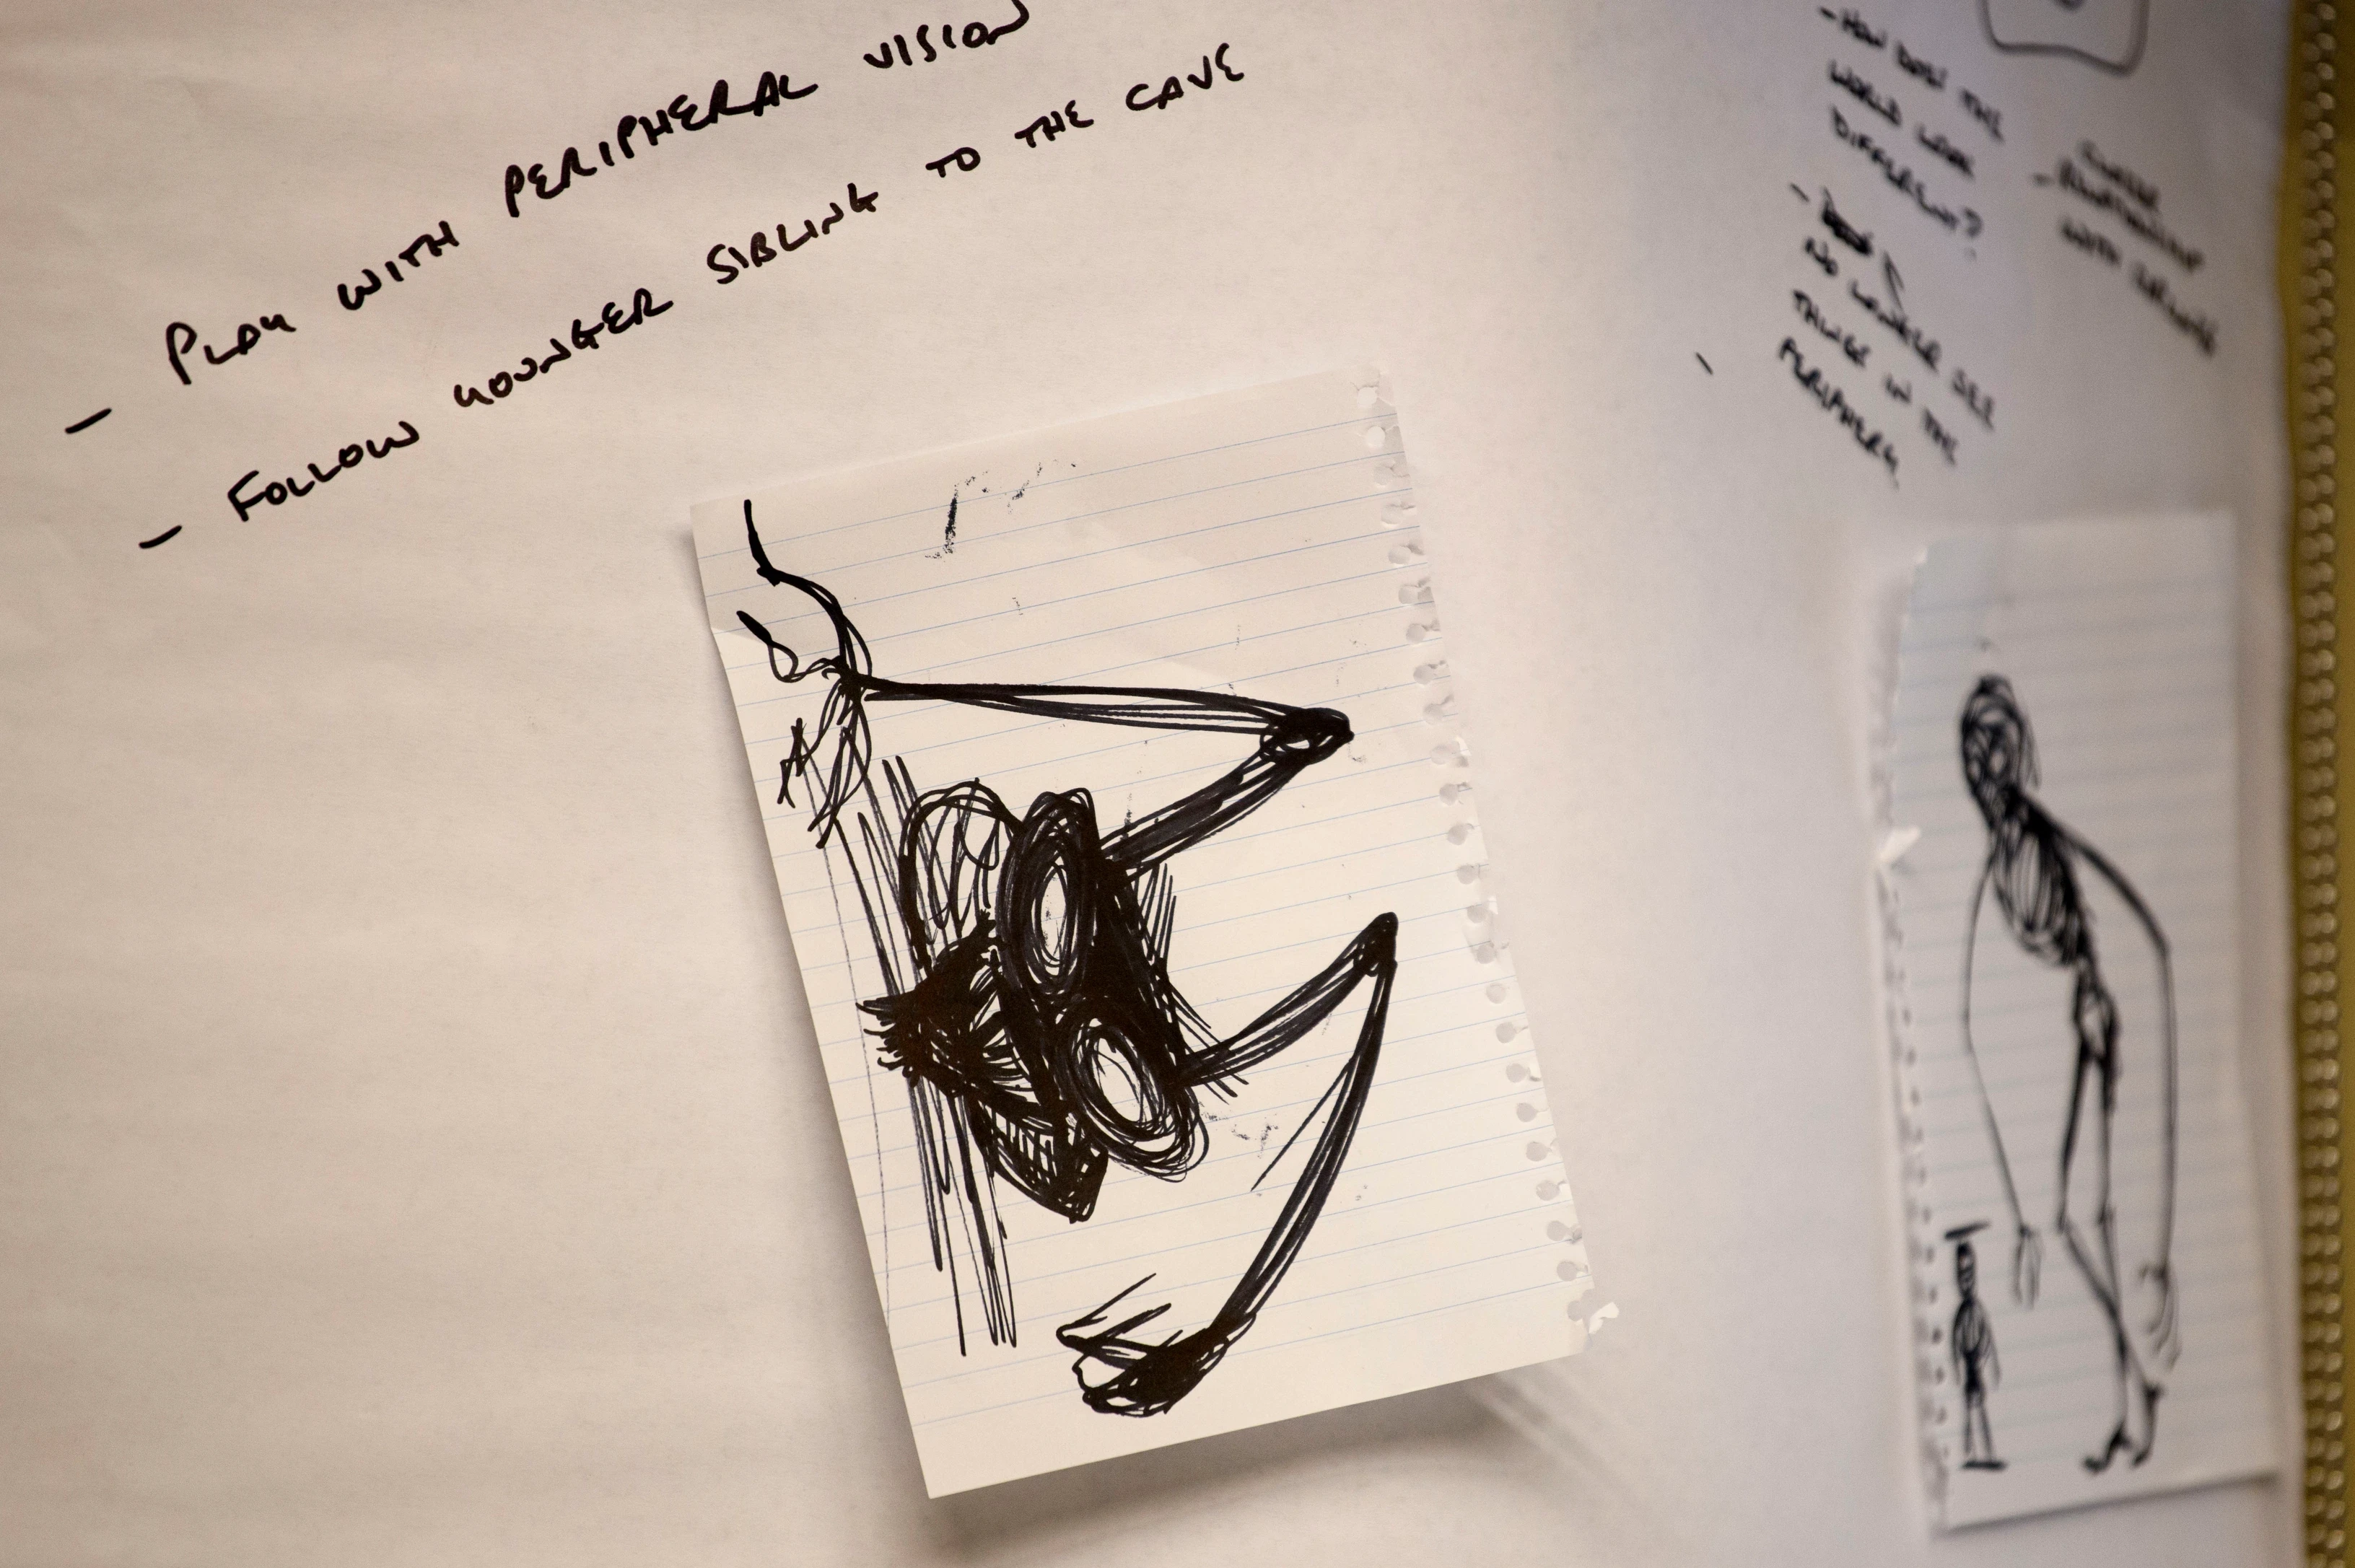 - PLAY WITH PERIPHERAL VISION
- FOLLOW YOUNGER SIBLING TO THE CAVE
- HOW DOES THE
WORLD LOOK
DIFFERENT?
-
NO LONGER SEE
THINGS IN THE
PERIPHERY
-
WITH